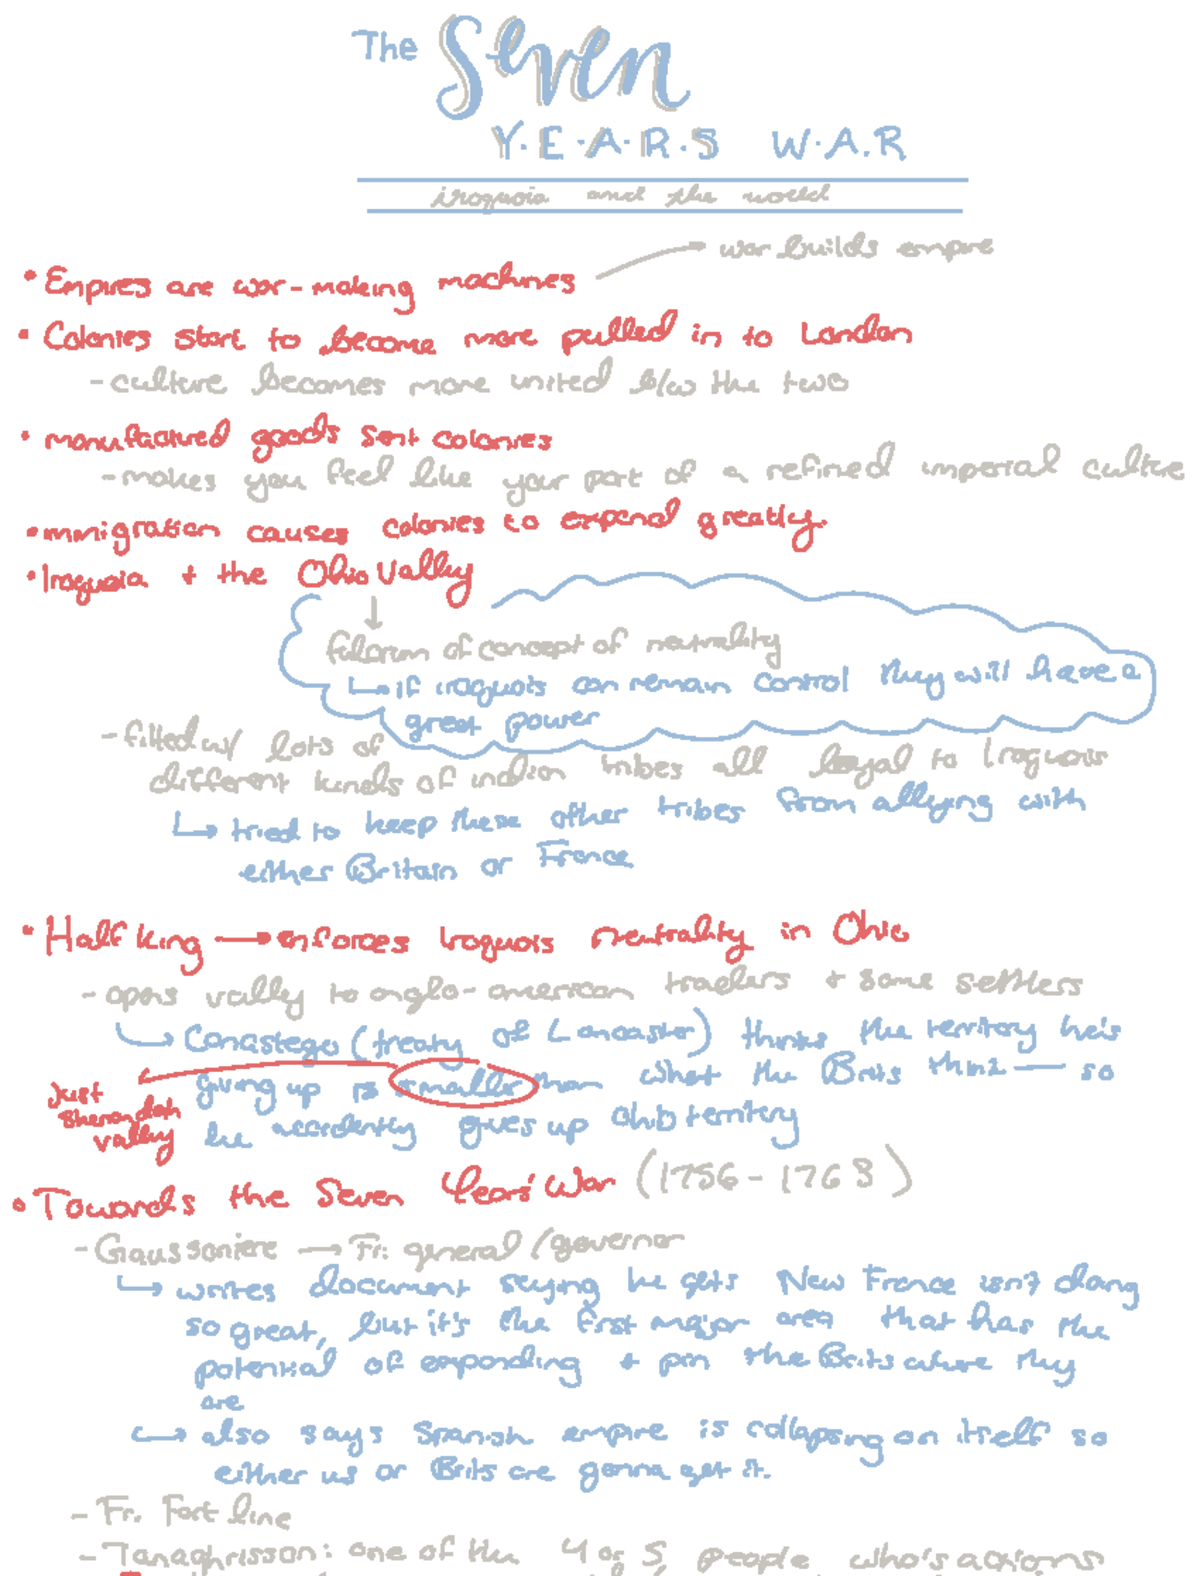 The Seven
Y.E.A.R.S W.A.R
iroquoia and the world
war builds empire
• Empires are war-making machines
• Colonies start to become more pulled in to London
- culture becomes more united b/w the two
• manufactured goods sent colonies
- makes you feel like your part of a refined imperial culture
• immigration causes colonies to expand greatly.
• Iroquoia + the Ohio Valley
fulcrum of concept of neutrality
↳ if iroquois can remain control they will have a
great power
- filled w/ lots of
different kinds of indian tribes all loyal to Iroquois
↳ tried to keep these other tribes from allying with
either Britain or France
• Half King → enforces Iroquois neutrality in Ohio
- opens vally to anglo-american traders + some settlers
↳ Conastego (treaty of Lancaster) thinks the territory he's
giving up is smaller than what the Brits think — so
just
Shenandoah
valley
he accidently gives up ohio territory
• Towards the Seven Years' War (1756-1763)
- Gaussoniere → Fr. general/governor
↳ writes document saying he gets New France isn't doing
so great, but it's the first major area that has the
potential of expanding + pin the Brits where they
are
↳ also says Spanish empire is collapsing on itself so
either us or Brits are gonna get it.
- Fr. Fort line
- Tanaghrisson: one of the 4 or 5 people who's actions